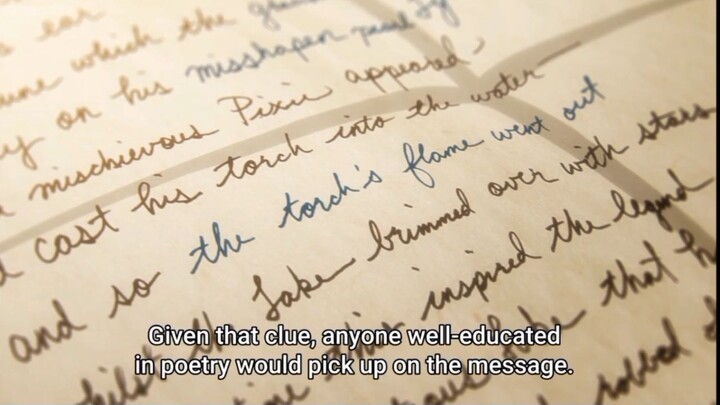 s ear
une which the
y on his misshapen pearl
mischievous Pixie appeared,
cast his torch into the water—
and so the torch's flame went out
the Lake brimmed over with stars
this inspired the legend
that h
robbed
Given that clue, anyone well-educated
in poetry would pick up on the message.